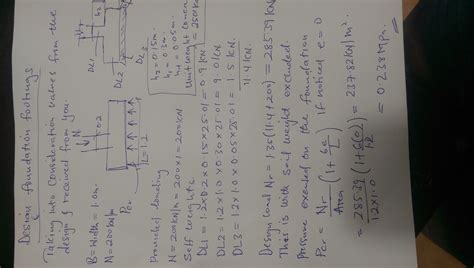 Design foundation footings
Taking into consideration values from the
design I received from you.
B = Width = 1.0m.
N = 200kN/m
N
h2
L = 1.2
Per
DL1
DL2
h3
h2 = 0.15m
h3 = 0.3m
h4 = 0.05m
Unit weight concrete
= 25kN
Provided loading
N = 200kN/m = 200x1 = 200kN
Self weights
DL1 = 1.2x0.2x0.15x25.01 = 0.9kN
DL2 = 1.2x1.0x0.30x25.01 = 9.0kN
DL3 = 1.2x1.0x0.05x25.01 = 1.5kN
11.4kN
Design load Nr = 1.35(11.4+200) = 285.39kN
This is with soil weight excluded.
Pressure exerted on the foundation
Per = Nr/Area (1 + 6e/L) if noticed e = 0
= 285.39/1.2x1.0 (1 + 6(0)/1.2) = 237.82kN/m².
= 0.238MPa.